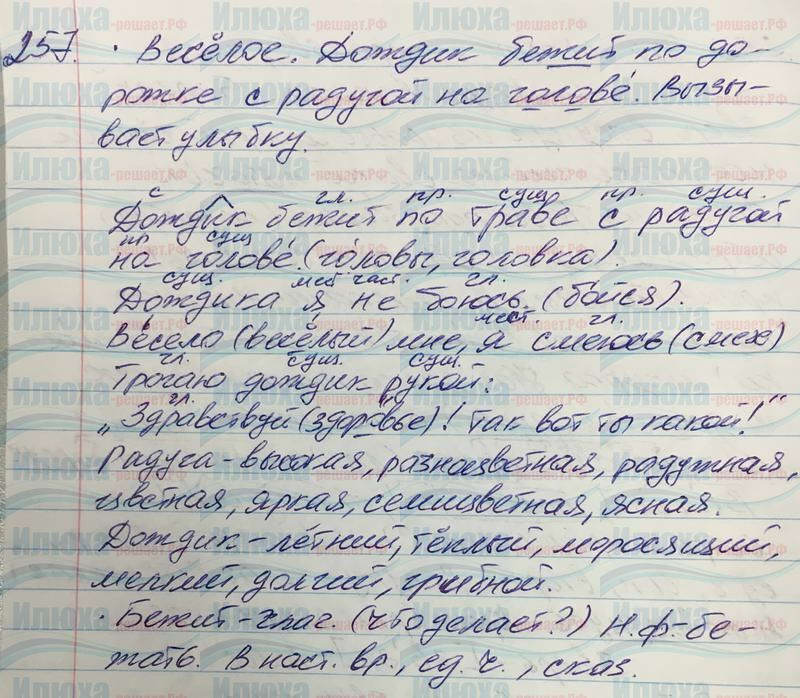 257. · Весёлое. Дождик бежит по до-
рожке с радугой на голове́. Вызы-
вает улыбку.
с гл. пр. сущ пр. сущ.
Дождик бежит по траве с радугой
пр сущ
на голове́ (го́ловы, головка).
сущ. мест част. гл.
Дождика я не боюсь (бо́йся).
мест гл.
Ве́село (весёлый) мне, я смеюсь (смех)
гл. сущ. сущ.
Трогаю дождик рукой:
гл.
„Здравствуй (здоровье)! Так вот ты какой!"
Радуга - высокая, разноцветная, радужная,
цветная, яркая, семицветная, ясная.
Дождик - летний, тёплый, моросящий,
мелкий, долгий, грибной.
· Бежит - глаг. (что делает?) Н.ф. - бе-
жать. В наст. вр., ед. ч., сказ.
Илюха-решает.РФ